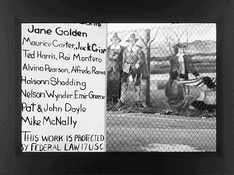 Jane Golden
Maurice Carter, Jack Crist
Ted Harris, Roi Montero
Alvino Pearson, Alfredo Ramos
Haisonn Shadding
Nelson Wynder, Ernie Greene
Pat & John Doyle
Mike McNally
THIS WORK IS PROTECTED
BY FEDERAL LAW 17USC